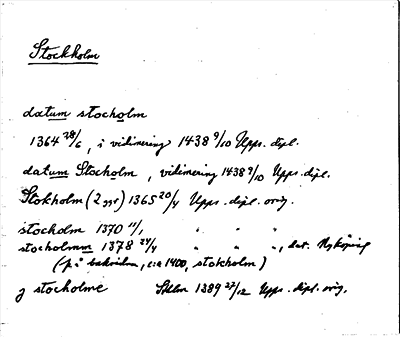 Stockholm
datum stocholm
1364 28/6, i vidimering 1438 9/10 Upps. dipl.
datum Stocholm, vidimering 1438 9/10 Upps. dipl.
Stokholm (2 ggr) 1365 20/4 Upps. dipl. orig.
stocholm 1370 11/1 " " "
stocholmm 1378 24/4 " " ", dat. Nyköping
(på baksidan, ca 1400, stokholm)
j stocholme Sthlm 1389 27/12 Upps. dipl. orig.